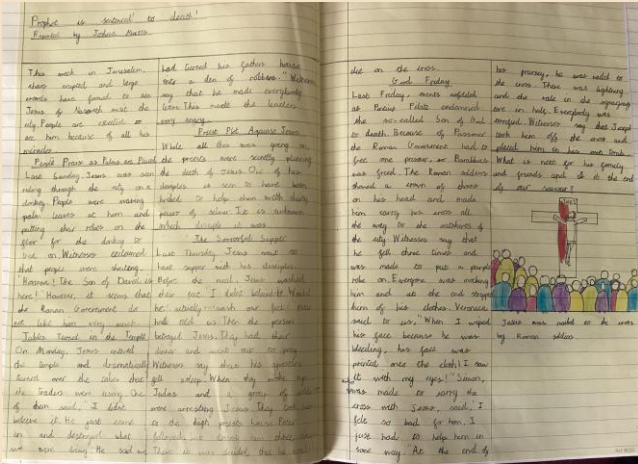 Prophet is sentenced to death!
Reported by Joshua
This week in Jerusalem,
crowds have formed to see
Jesus of Nazareth visit the
city. People are excited to
see him because of all his
miracles.
People Praise as Palms are Paved
Last Sunday, Jesus was seen
riding through the city on a
donkey. People were waving
palm leaves at him and
putting their robes on the
floor for the donkey to
walk on. Witnesses exclaimed
that people were shouting,
Hosanna! The Son of David is
here! However, it seems that
the Roman Government do
not like him very much.
Tables Turned in the Temple
On Monday, Jesus entered
the temple and dramatically
turned over the tables that
the traders were using. One
of them said, "I didn't
believe it. He just came
in and destroyed what
we were doing. He said we
had turned his fathers house
into a den of robbers." Witnesses
say that he made everybody
This made the leaders
very angry.
Priest Plot Against Jesus
While all this was going on,
the priests were secretly planning
the death of Jesus. One of his
disciples is seen to have been
bribed to help them with thirty
pieces of silver. It is unknown
which disciple it was.
The Sorrowful Supper
Last Thursday, Jesus
have supper with his disciples.
Before the meal, Jesus washed
their feet. I didn't believe it. Would
he actually wash our feet?
told us. Then the person
betrayed Jesus. They had their
dinner and went out to pray.
Witnesses say that his disciples
fell asleep. When they woke up,
Judas and a group of
were arresting Jesus. They took him
to the high priests house. Peter
followed
There is was decided that he would
die on the cross.
Good Friday
Last Friday, events unfolded
as Pontius Pilate condemned
the so-called Son of God
to death. Because of Passover
the Roman Government had to
free one prisoner, so Barabbas
was freed. The Roman soldiers
shoved a crown of thorns
on his head and made
him carry his cross all
the way to the outskirts of
the city. Witnesses say that
he fell three times and
was made to put a purple
robe on. Everyone was mocking
him and at the end stripped
him of his clothes. Veronica
said to us, "When I wiped
his face because he was
bleeding, his face was
printed once the cloth! I saw
it with my eyes!" Simon,
was made to carry the
cross with Jesus, said, "I
felt so bad for him, I
just had to help him in
some way. At the end of
his journey, he was nailed to
the cross. There was lightning
and the veil in the synagogue
tore in half. Everybody was
terrified. Witnesses say that Joseph
took him off the cross and
placed him in his own tomb.
What is next for his family
and friends and is it the end
of our saviour?
Jesus was nailed to the cross
by Roman soldiers